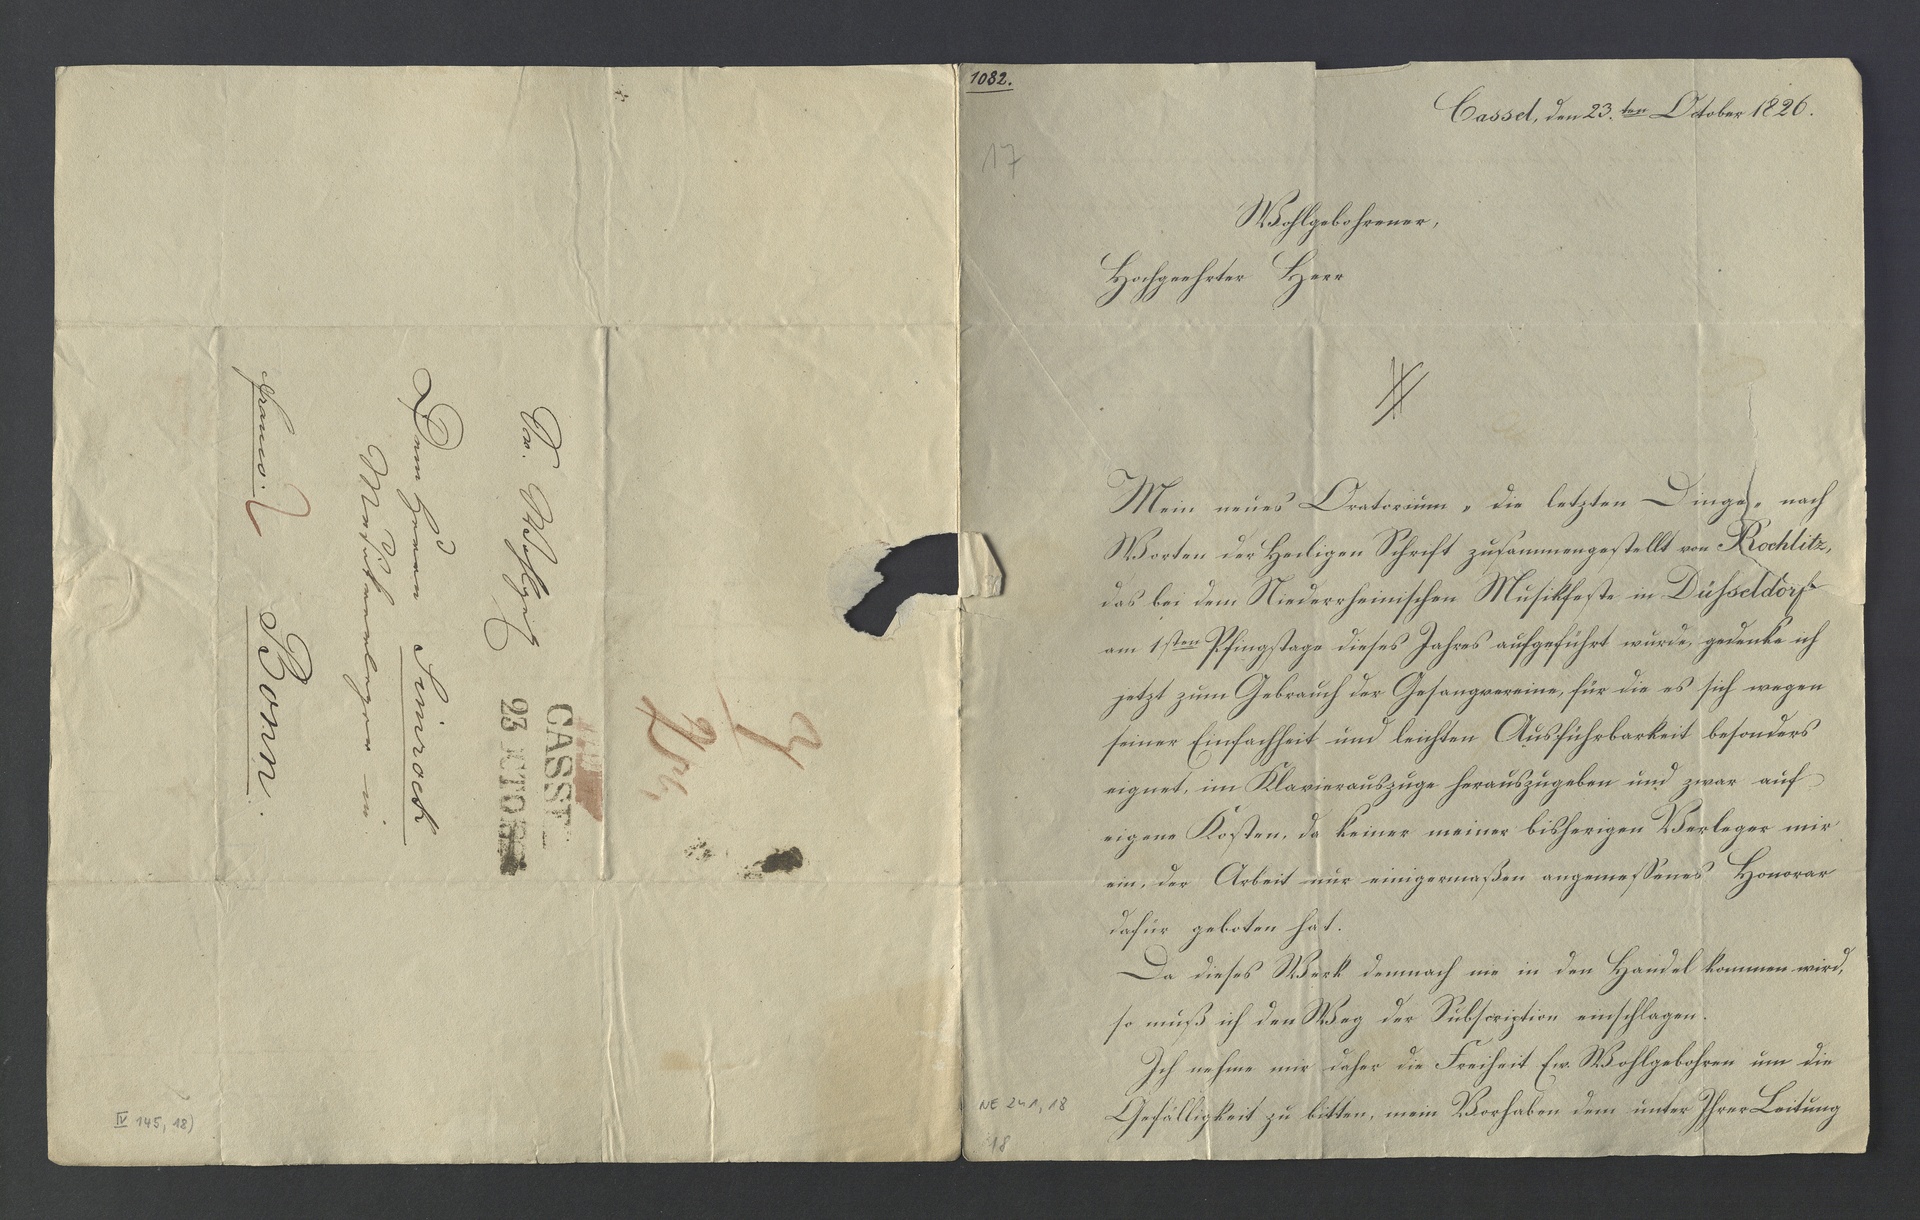 1082.
17
Cassel, den 23.ten October 1826.
Wohlgebohrener,
Hochgeehrter Herr
Mein neues Oratorium „ die letzten Dinge „ nach
Worten der Heiligen Schrift zusammengestellt von Rochlitz,
das bei dem Niederrheinischen Musikfeste in Düsseldorf
am 1sten Pfingstage dieses Jahres aufgeführt wurde, gedenke ich
jetzt zum Gebrauch der Gesangvereine, für die es sich wegen
seiner Einfachheit und leichten Ausführbarkeit besonders
eignet, im Klavierauszuge herauszugeben und zwar auf
eigene Kosten, da keiner meiner bisherigen Verleger mir
ein, der Arbeit nur einigermaßen angemessenes Honorar
dafür geboten hat.
Da dieses Werk demnach nie in den Handel kommen wird,
so muß ich den Weg der Subscription einschlagen.
Ich nehme mir daher die Freiheit Ew. Wohlgebohren um die
Gefälligkeit zu bitten, mein Vorhaben dem unter Ihrer Leitung
NE 241, 18
18
Dem Herrn Simrock
Musikverleger in
Bonn.
franco.
CASSEL
23 OCTOBR
IV 145, 18)